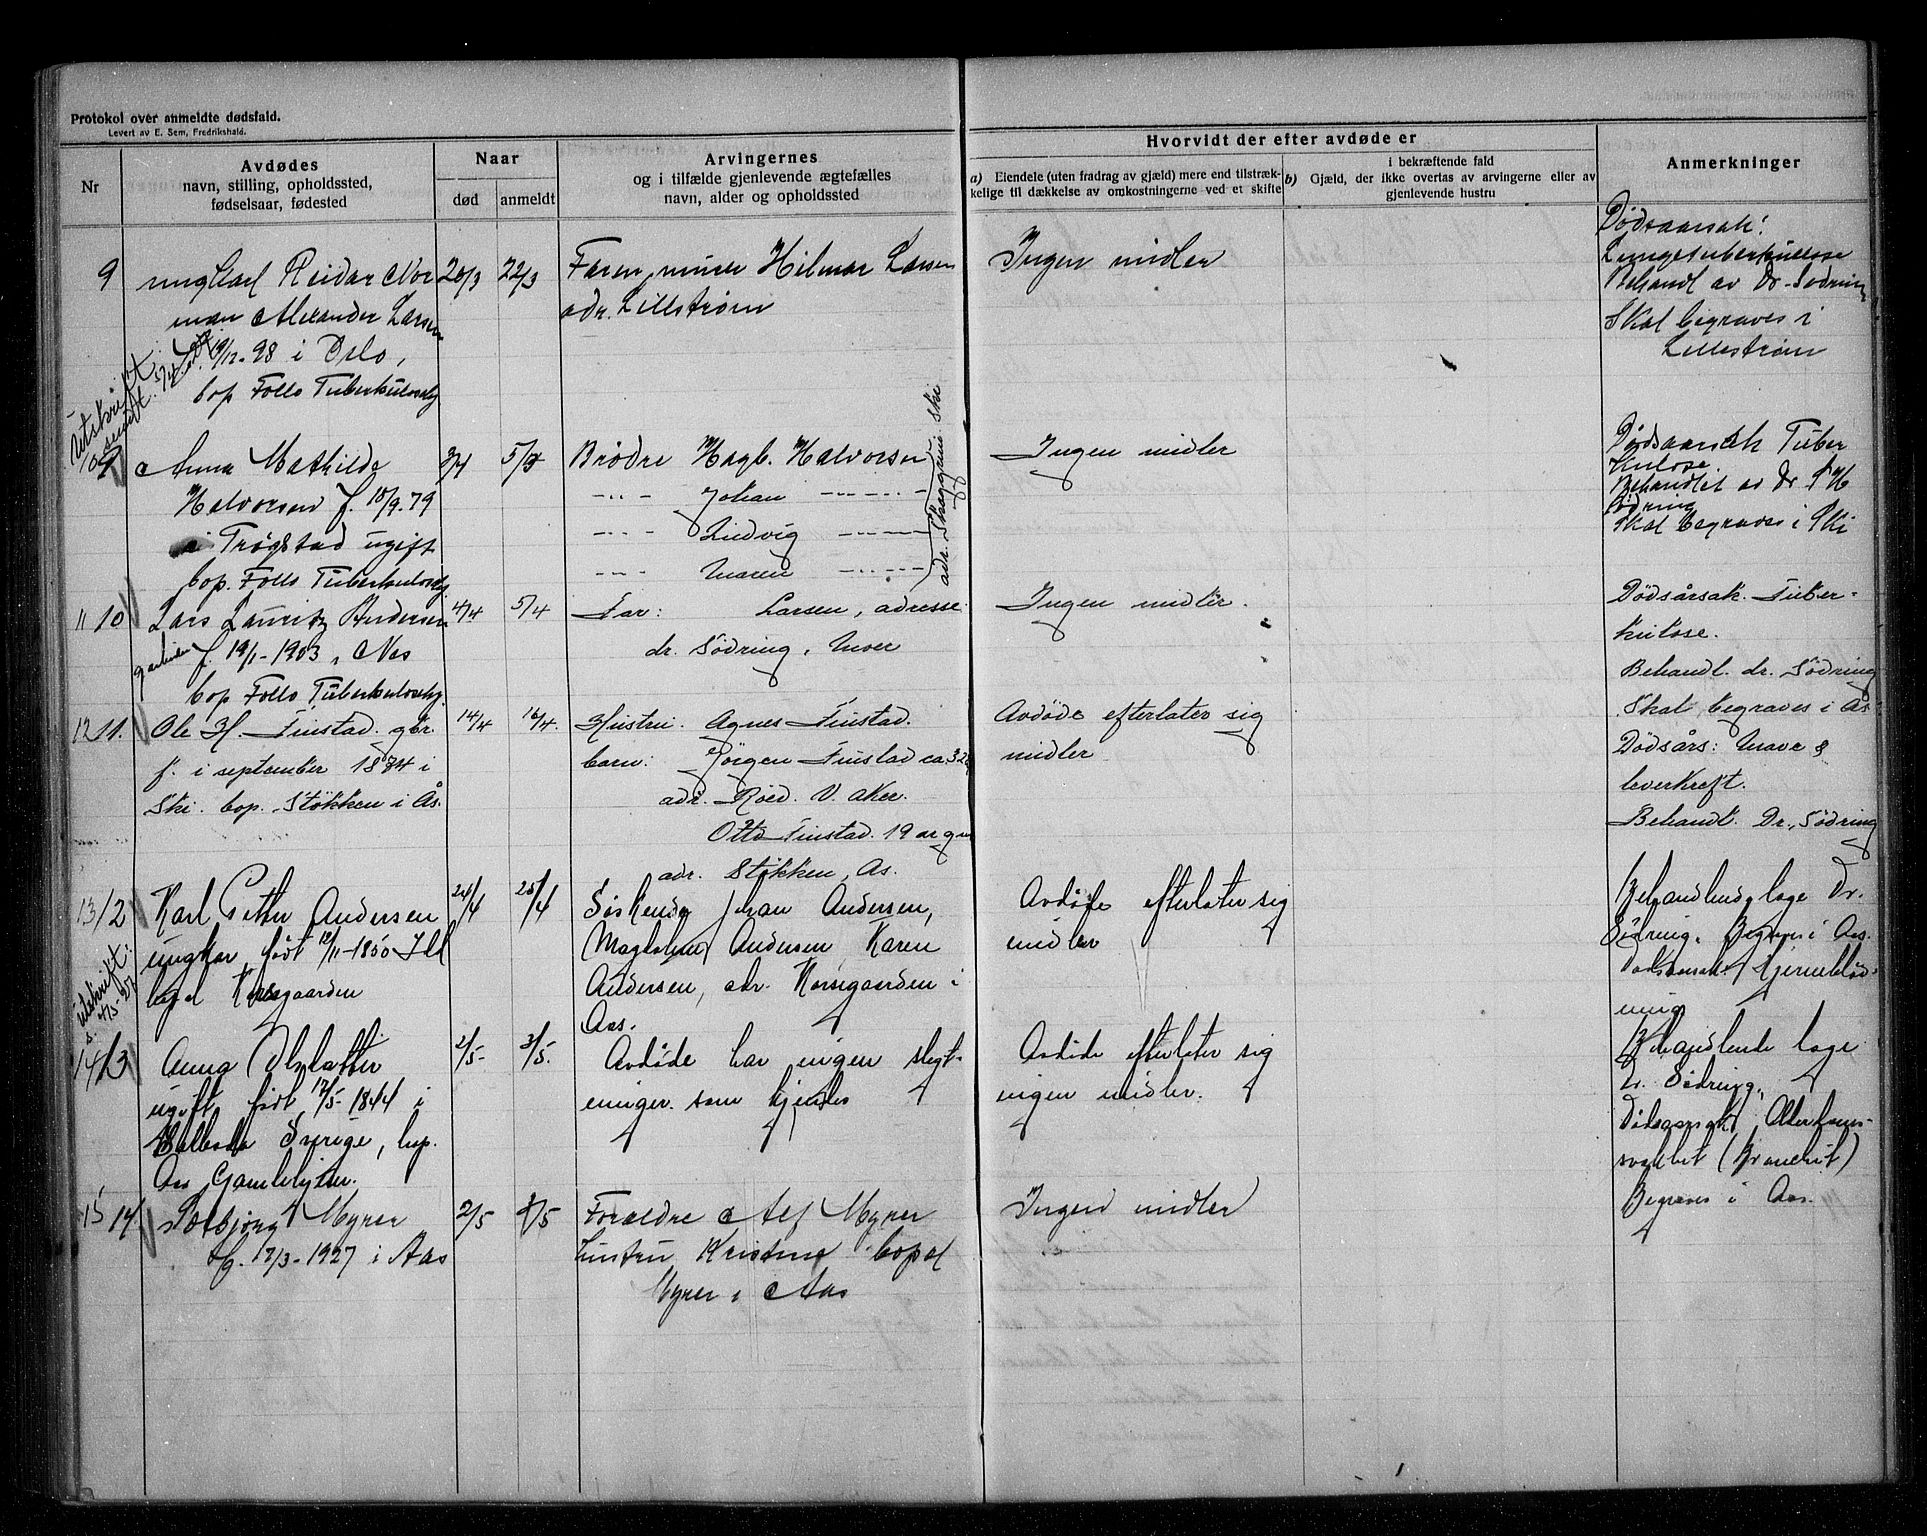 Protokol over anmeldte dødsfald.
Levert av E. Sem, Fredrikshald.
Nr
Avdødes
navn, stilling, opholdssted,
fødselsaar, fødested
Naar
død
anmeldt
Arvingernes
og i tilfælde gjenlevende ægtefælles
navn, alder og opholdssted
Hvorvidt der efter avdøde er
a) Eiendele (uten fradrag av gjæld) mere end tilstræk-
kelige til dækkelse av omkostningerne ved et skifte
i bekræftende fald
b) Gjæld, der ikke overtas av arvingerne eller av
gjenlevende hustru
Anmerkninger
9
ungkarl Reidar Nor
man Alexander Larsen
19/12-98 i Oslo,
bop Follo Tuberkulosehj
20/3
22/3
Faren, murer Hilmar Larsen
adr. Lillestrøm
Ingen midler
Dødsaarsak:
Lungetuberkulose
Behandl av Dr. Sødring
Skal begraves i
Lillestrøm
Utskrift
sendt 5/4
10 9
Anna Mathilde
Halvorsen f. 18/9.79
i Trøgstad ugift
bop. Follo Tuberkulosehj
3/4
5/4
Brødre Hagb. Halvorsen
--- Johan -----
--- Ludvig -----
--- Maren -----
adr. Skuggrud Ski
Ingen midler
Dødsaarsak Tuber
kulose.
Behandlet av Dr
Sødring
Skal begraves i Ski
11 10
Lars Lauritz Andersen
f. 19/1-1903, Nes
bop Follo Tuberkulosehj.
4/4
5/4
Far: Larsen, adresse
dr. Sødring,
Ingen midler.
Dødsårsak. Tuber-
kulose.
Behandl. dr. Sødring
Skal begraves i Ås
12 11.
Ole H. Finstad. gbr.
f. i september 1874 i
Ski. bop. Støkken i Ås.
14/4
16/4.
Hustru. Agnes Finstad.
barn: Jørgen Finstad ca 32
adr. Røed. V. Aker.
Otto Finstad. 19 ar
adr. Støkken, As.
Avdøde efterlater sig
midler
Dødsårs: Mave &
leverkreft.
Behandl. Dr. Sødring
13 12
Karl Petter Andersen
ungkar født 13/11-1850
bopel Korsegaarden
24/4
25/4
Søskende Johan Andersen,
Magdalene Andersen Karen
Andersen, adr. Korsegaarden i
Aas.
Avdøde efterlater sig
midler
Behandlende læge Dr.
Sødring. Begraves i Aas.
Dødsaarsak Hjerneblød-
ning
Utskrift:
14 13
Anna Olsdatter
ugift født 17/5-1844 i
Sverige, bop.
Aas Gamlehjem.
2/5-
3/5.
Avdøde har ingen slegt-
ninger som kjendes
Avdøde efterlater sig
ingen midler.
Behandlende læge
Dr. Sødring.
Dødsaarsak Alderdoms-
svakhet (Bronchit)
Begraves i Aas.
15 14
Solbjørg Myrer
fg. 17/3-1927 i Aas
2/5
4/5
Foreldre Alf Myrer
hustru Kristine bopæl
Myrer i Aas
Ingen midler